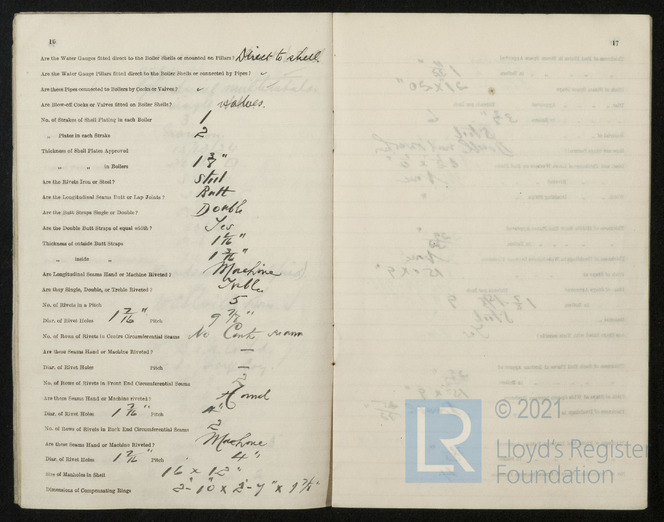 16
Are the Water Gauges fitted direct to the Boiler Shells or mounted on Pillars? Direct to shell
Are the Water Gauge Pillars fitted direct to the Boiler Shells or connected by Pipes? ✓
Are these Pipes connected to Boilers by Cocks or Valves? ✓
Are Blow-off Cocks or Valves fitted on Boiler Shells? Valves.
No. of Strakes of Shell Plating in each Boiler 1
„ Plates in each Strake 2
Thickness of Shell Plates Approved
„ „ in Boilers
Are the Rivets Iron or Steel? Steel
Are the Longitudinal Seams Butt or Lap Joints? Butt
Are the Butt Straps Single or Double? Double
Are the Double Butt Straps of equal width? Yes
Thickness of outside Butt Straps 1 1/16"
„ inside „ 1 3/16"
Are Longitudinal Seams Hand or Machine Riveted? Machine
Are they Single, Double, or Treble Riveted? Treble
No. of Rivets in a Pitch 5
Diar. of Rivet Holes 1 7/16" Pitch 9 7/8"
No. of Rows of Rivets in Centre Circumferential Seams No Cent seam
Are these Seams Hand or Machine Riveted? —
Diar. of Rivet Holes Pitch —
No. of Rows of Rivets in Front End Circumferential Seams 2
Are these Seams Hand or Machine riveted? Hand
Diar. of Rivet Holes 1 7/16" Pitch 4"
No. of Rows of Rivets in Back End Circumferential Seams 2
Are these Seams Hand or Machine Riveted? Machine
Diar. of Rivet Holes 1 7/16" Pitch 4"
Size of Manholes in Shell 16 x 12"
Dimensions of Compensating Rings
17
© 2021
Lloyd's Register
Foundation
LR